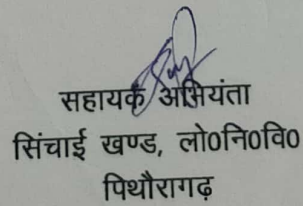 सहायक अभियंता
सिंचाई खण्ड, लो0नि0वि0
पिथौरागढ़